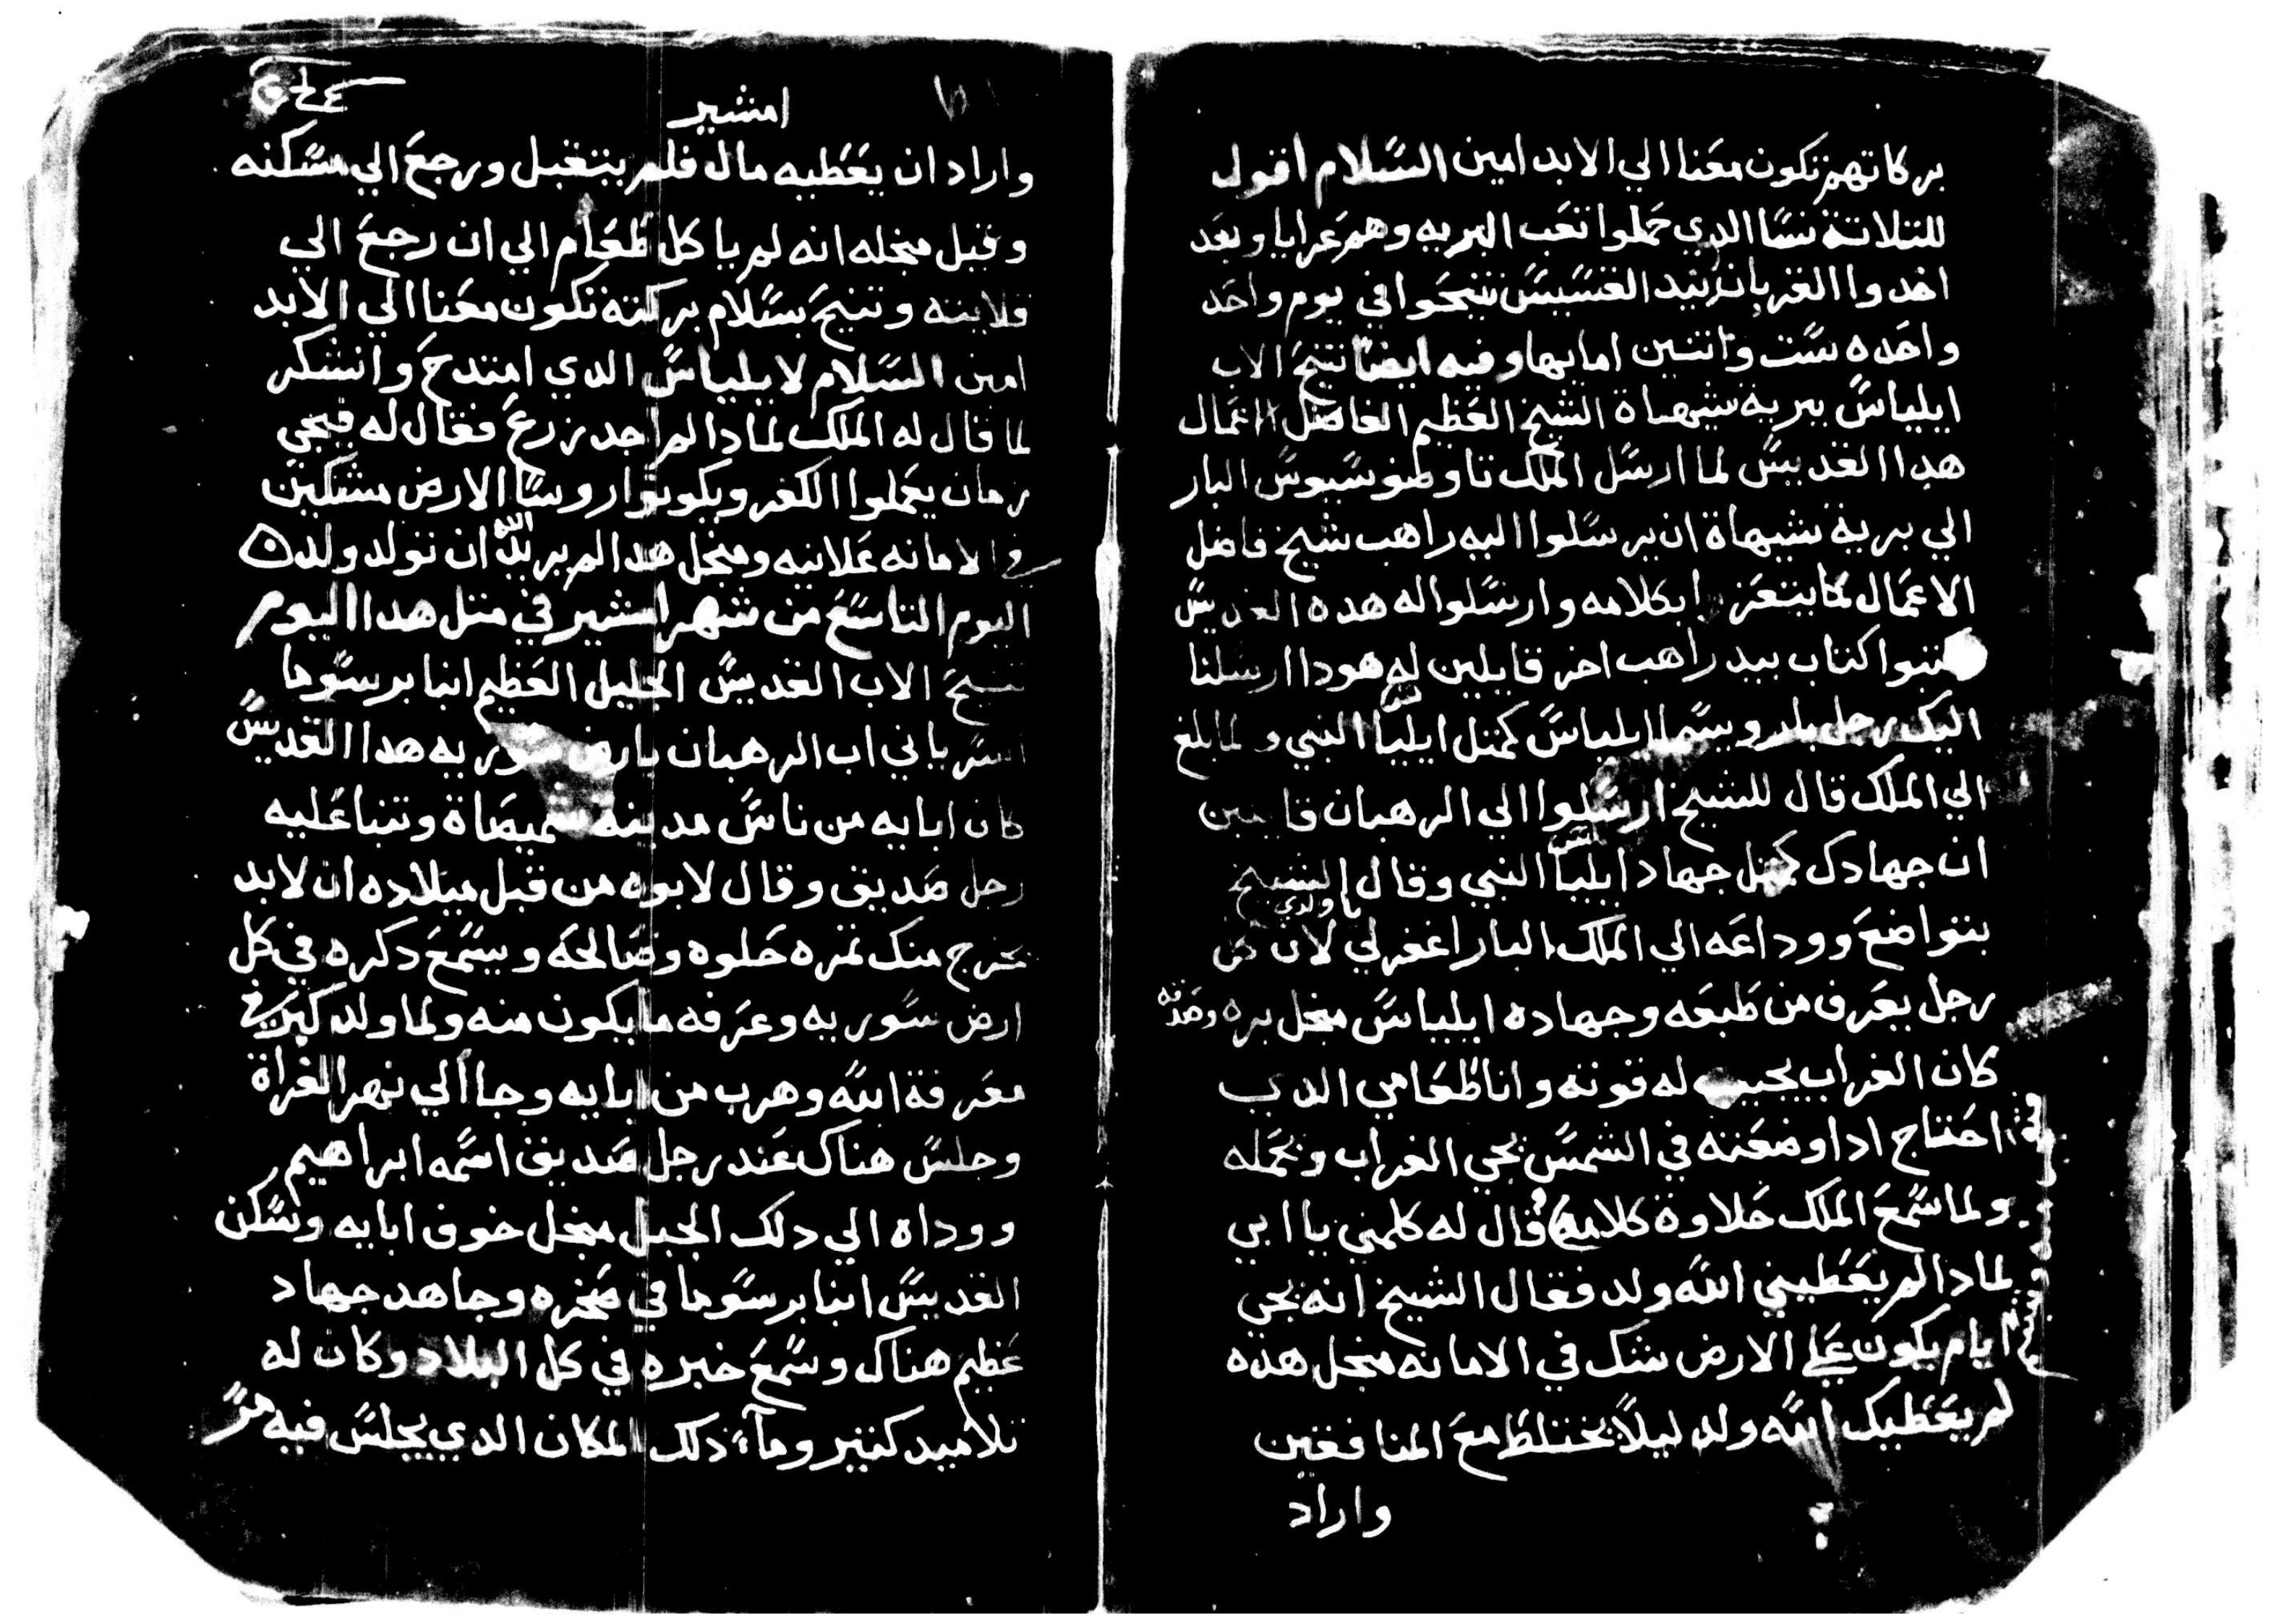 بركاتهم تكون معنا الي الابد امين السلام اقول
للتلاتة نسا الدي حملوا تعب البريه وهم عرايا وبعد
اخدوا القربان بيد القسيس تنيحوا في يوم واحد
واحده ست واتنين امايها وفيه ايضا تنيح الاب
ايلياس ببرية شيهاة الشيخ العظيم الفاضل الاعمال
هدا القديس لما ارسل الملك تاوضوسيوس البار
الي برية شيهاة ان يرسلوا اليه راهب شيخ فاضل
الاعمال لكا يتعزا بكلامه وارسلوا له هده القديس
كتبوا كتاب بيد راهب اخر قايلين له هودا ارسلنا
اليك رجل بار ويسما ايلياس كمتل ايليا النبي ولما بلغ
الي الملك قال للشيخ ارسلوا الي الرهبان قايلين
ان جهادك كمتل جهاد ايليا النبي وقال الشيخ
بتواضع ووداعه الي الملك البار يا ولدي اغفر لي لان كل
رجل يعرف من طبعه وجهاده ايلياس منجل بره وصدقه
كان الغراب يجيب له قوته وانا طعامي الدي
احتاج ادا وضعته في الشمس يجي الغراب ويحمله
ولما سمع الملك حلاوة كلامه قال له كلمني يا ابي
لمادا لم يعطيني الله ولد فقال الشيخ انه يجي
ايام يكون علي الارض شك في الامانه منجل هده
لم يعطيك الله ولد ليلا يختلط مع المنافقين
واراد
امشير
واراد ان يعطيه مال فلم يتقبل ورجع الي مسكنه
وقيل منجله انه لم ياكل طعام الي ان رجع الي
قلايته وتنيح بسلام بركته تكون معنا الي الابد
امين السلام لايلياس الدي امتدح وانشكر
لما قال له الملك لمادا لم اجد زرع فقال له فيجي
زمان يعملوا الكفر ويكونوا روسا الارض مشككين
في الامانه علانيه ومنجل هدا لم يريد الله ان تولد ولد
اليوم التاسع من شهر امشير في متل هدا اليوم
تنيح الاب القديس الجليل العظيم انبا برسوما
السرياني اب الرهبان بارض سوريه هدا القديس
كان ابايه من ناس مدينة سميصاة وتنبا عليه
رجل صديق وقال لابوه من قبل ميلاده ان لابد
يخرج منك تمره حلوه وصالحه ويسمع دكره في كل
ارض سوريه وعرفه ما يكون منه ولما ولد كبر في
معرفة الله وهرب من ابايه وجا الي نهر الفراة
وجلس هناك عند رجل صديق اسمه ابراهيم
ووداه الي دلك الجبل منجل خوف ابايه وسكن
القديس انبا برسوما في صخره وجاهد جهاد
عظيم هناك وسمع خبره في كل البلاد وكان له
تلاميد كتير وماء ذلك المكان الدي يجلس فيه مر